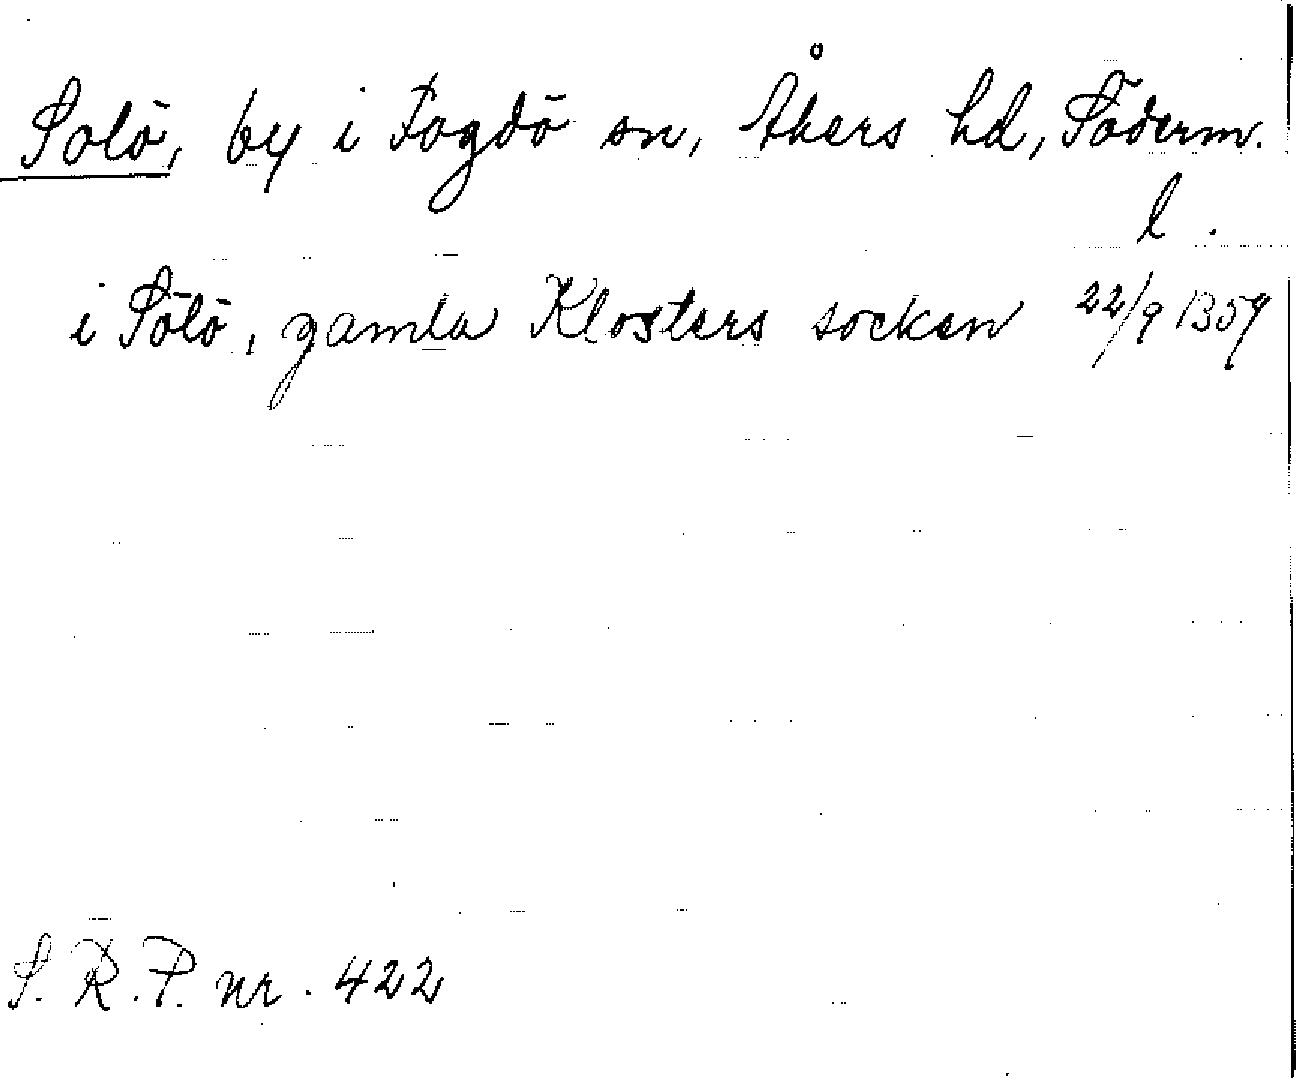 Solö, by i Fogdö sn, Åkers hd, Söderm.
l.
i Sölö, gamla Klosters socken 22/9 1359
S.R.P. nr. 422